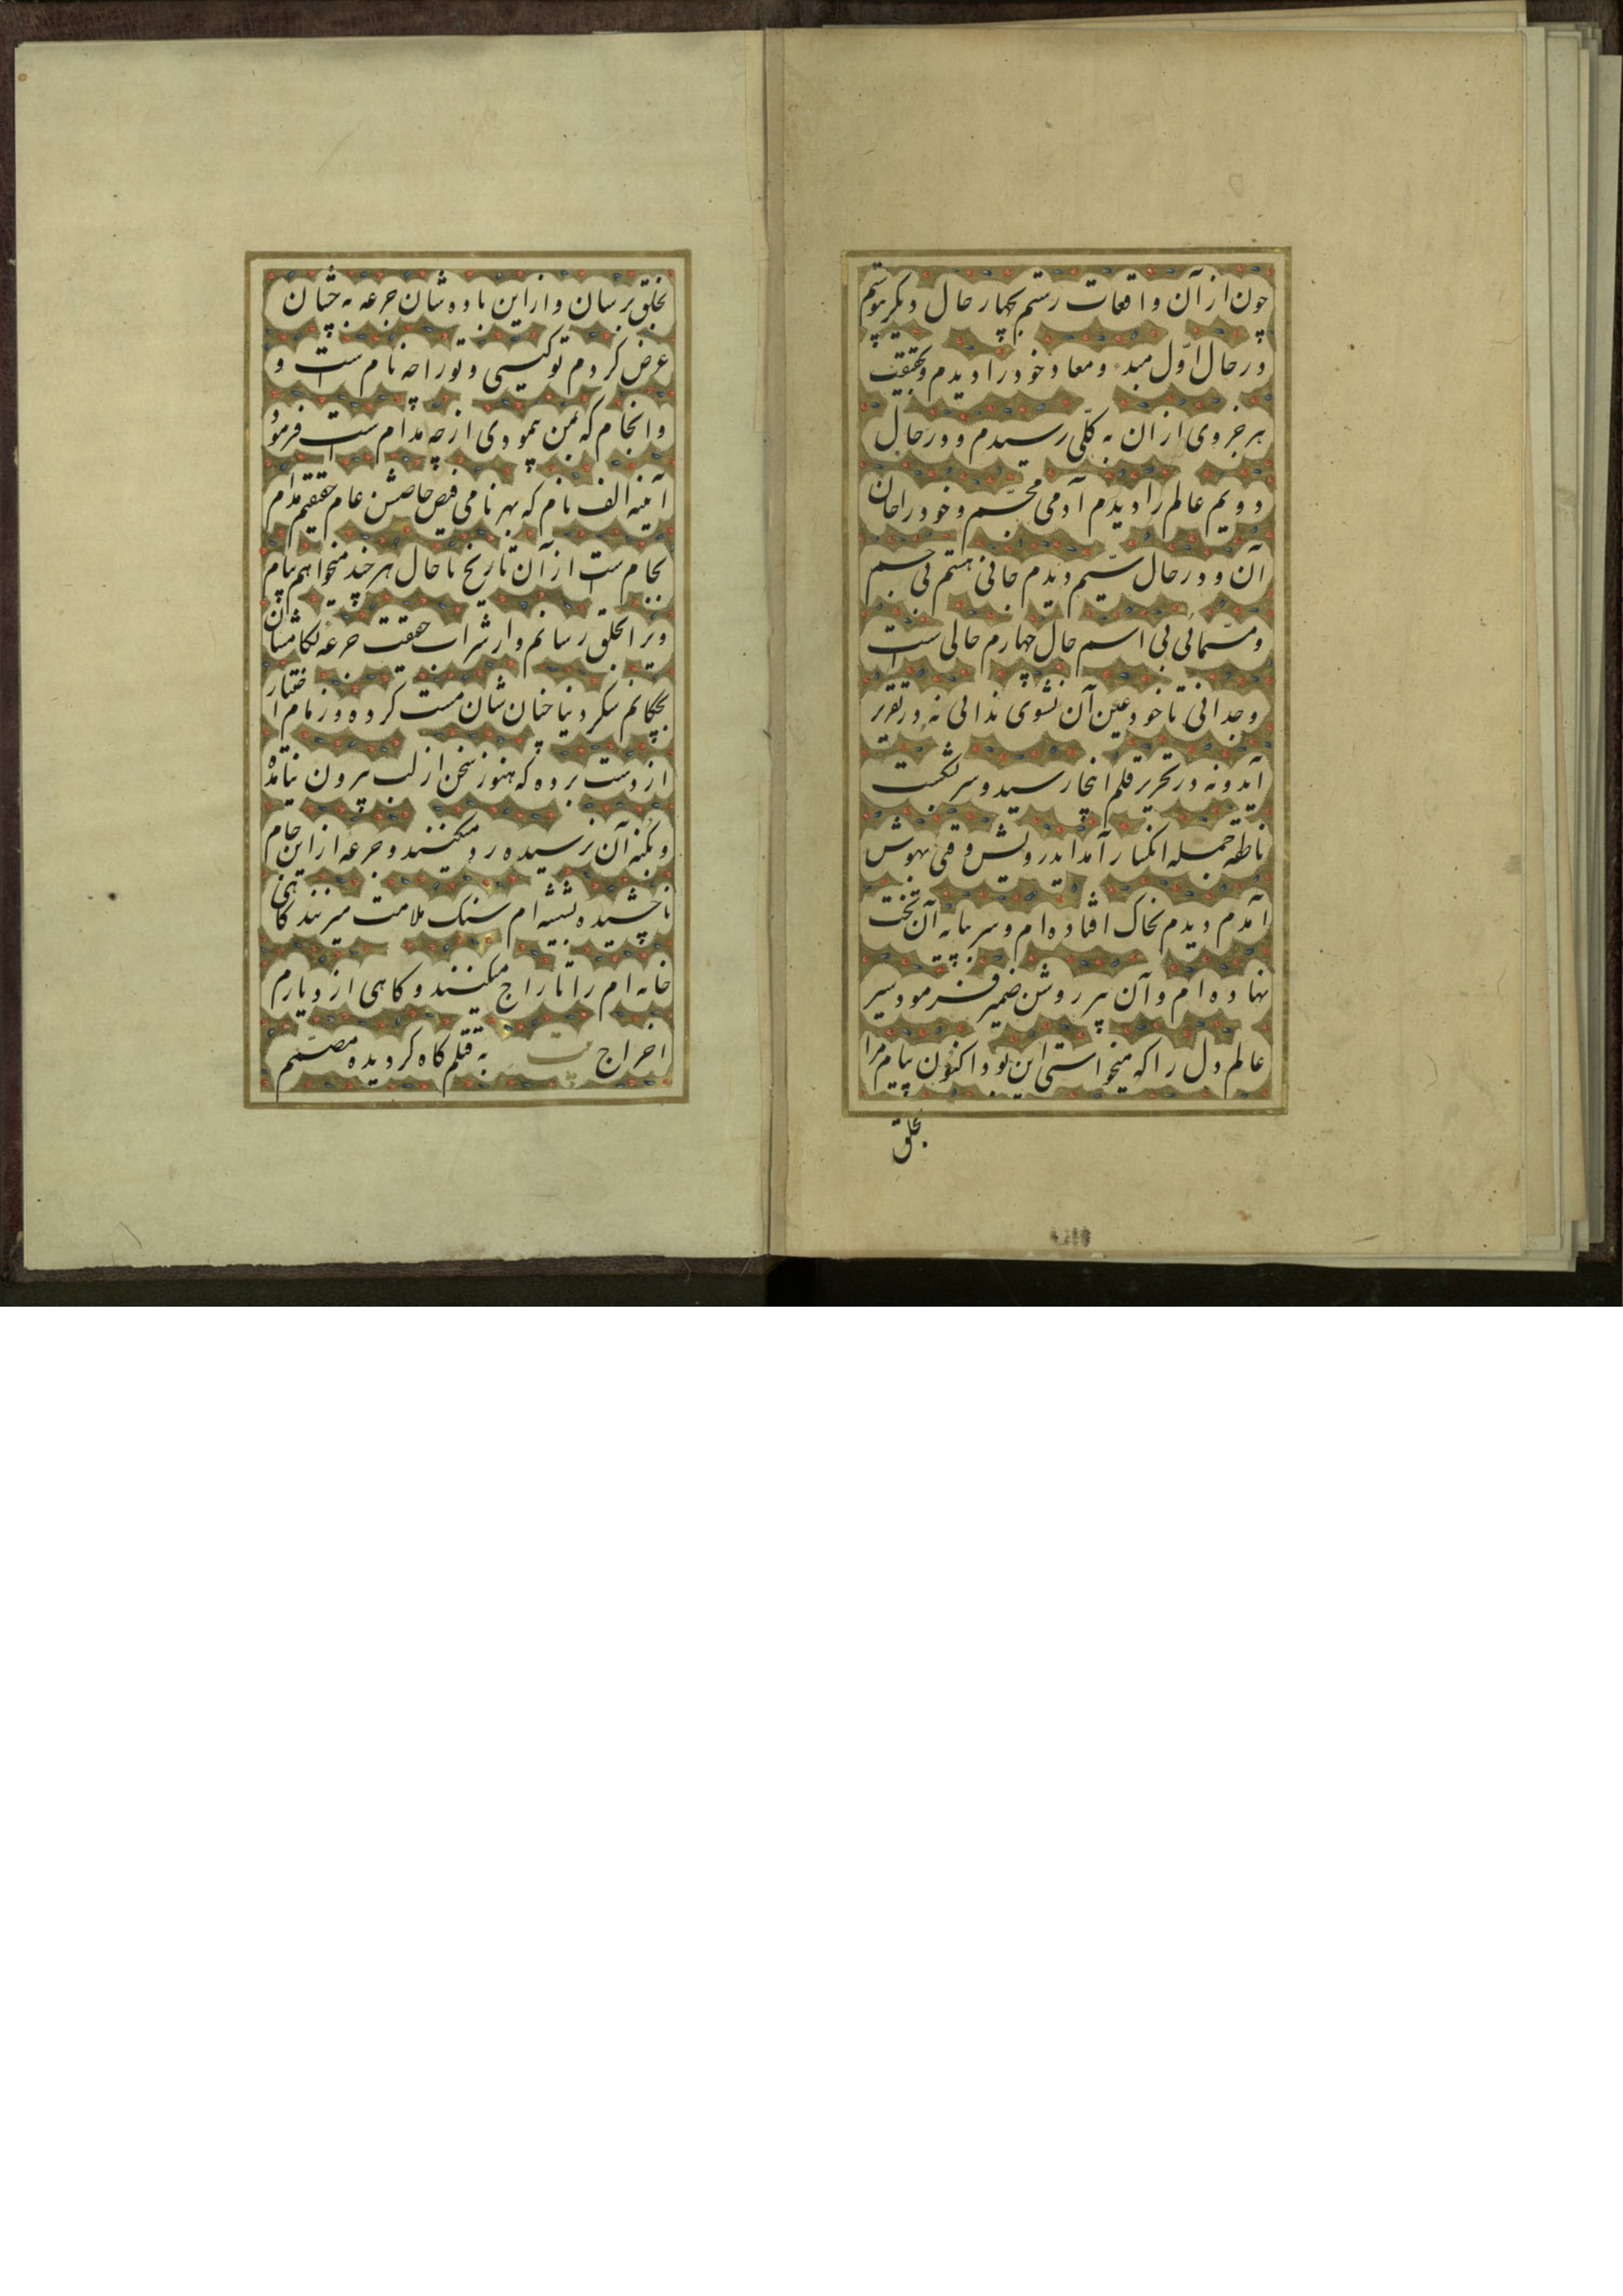 چون از آن واقعات رستم بچهار حال دیگر پیوستم
در حال اوّل مبدء و معاد خود را دیدم و بحقیقت
هر جزوی از ان به کلّی رسیدم و در حال
دویم عالم را دیدم آدمی مجسّم و خود را جان
آن و در حال سیّم دیدم جانی هستم بی جسم
و مسمّائی بی اسم حال چهارم حالی ست
وجدانی تا خود عین آن نشوی ندانی نه در تقریر
آید و نه در تحریر قلم اینجا رسید و سر بشکست
ناطقه جمله انکسار آمد ایدرویش وقتی بهوش
آمدم دیدم بخاک افتاده‌ام و سر بپایه آن تخت
نهاده‌ام و آن پیر روشن ضمیر فرمود سیر
عالم دل را که میخواستی این بود اکنون پیام مرا
بخلق
بخلق برسان و از این باده شان جرعه بچشان
عرض کردم تو کیستی و تو را چه نام ست و
و انجام که بمن پیمودی از چه مدام ست فرمود
آینه الف نام که بهر نامی فیض خاصش عام حقیقتم مدام
بجام ست از آن تاریخ تا حال هر چند میخواهم پیام
ویرا بخلق رسانم و از شراب حقیقت جرعه بکامشان
بچکانم سکر دنیا چنان شان مست کرده و زمام اختیار
از دست برده که هنوز سخن از لب بیرون نیامده
و بکنه آن نرسیده رد میکنند و جرعه از این جام
ناچشیده بشیشه‌ام سنک ملامت میزنند کاهی
خانه‌ام را تاراج میکنند و کاهی از دیارم
اخراج به قتلم کاه کردیده مصمّم